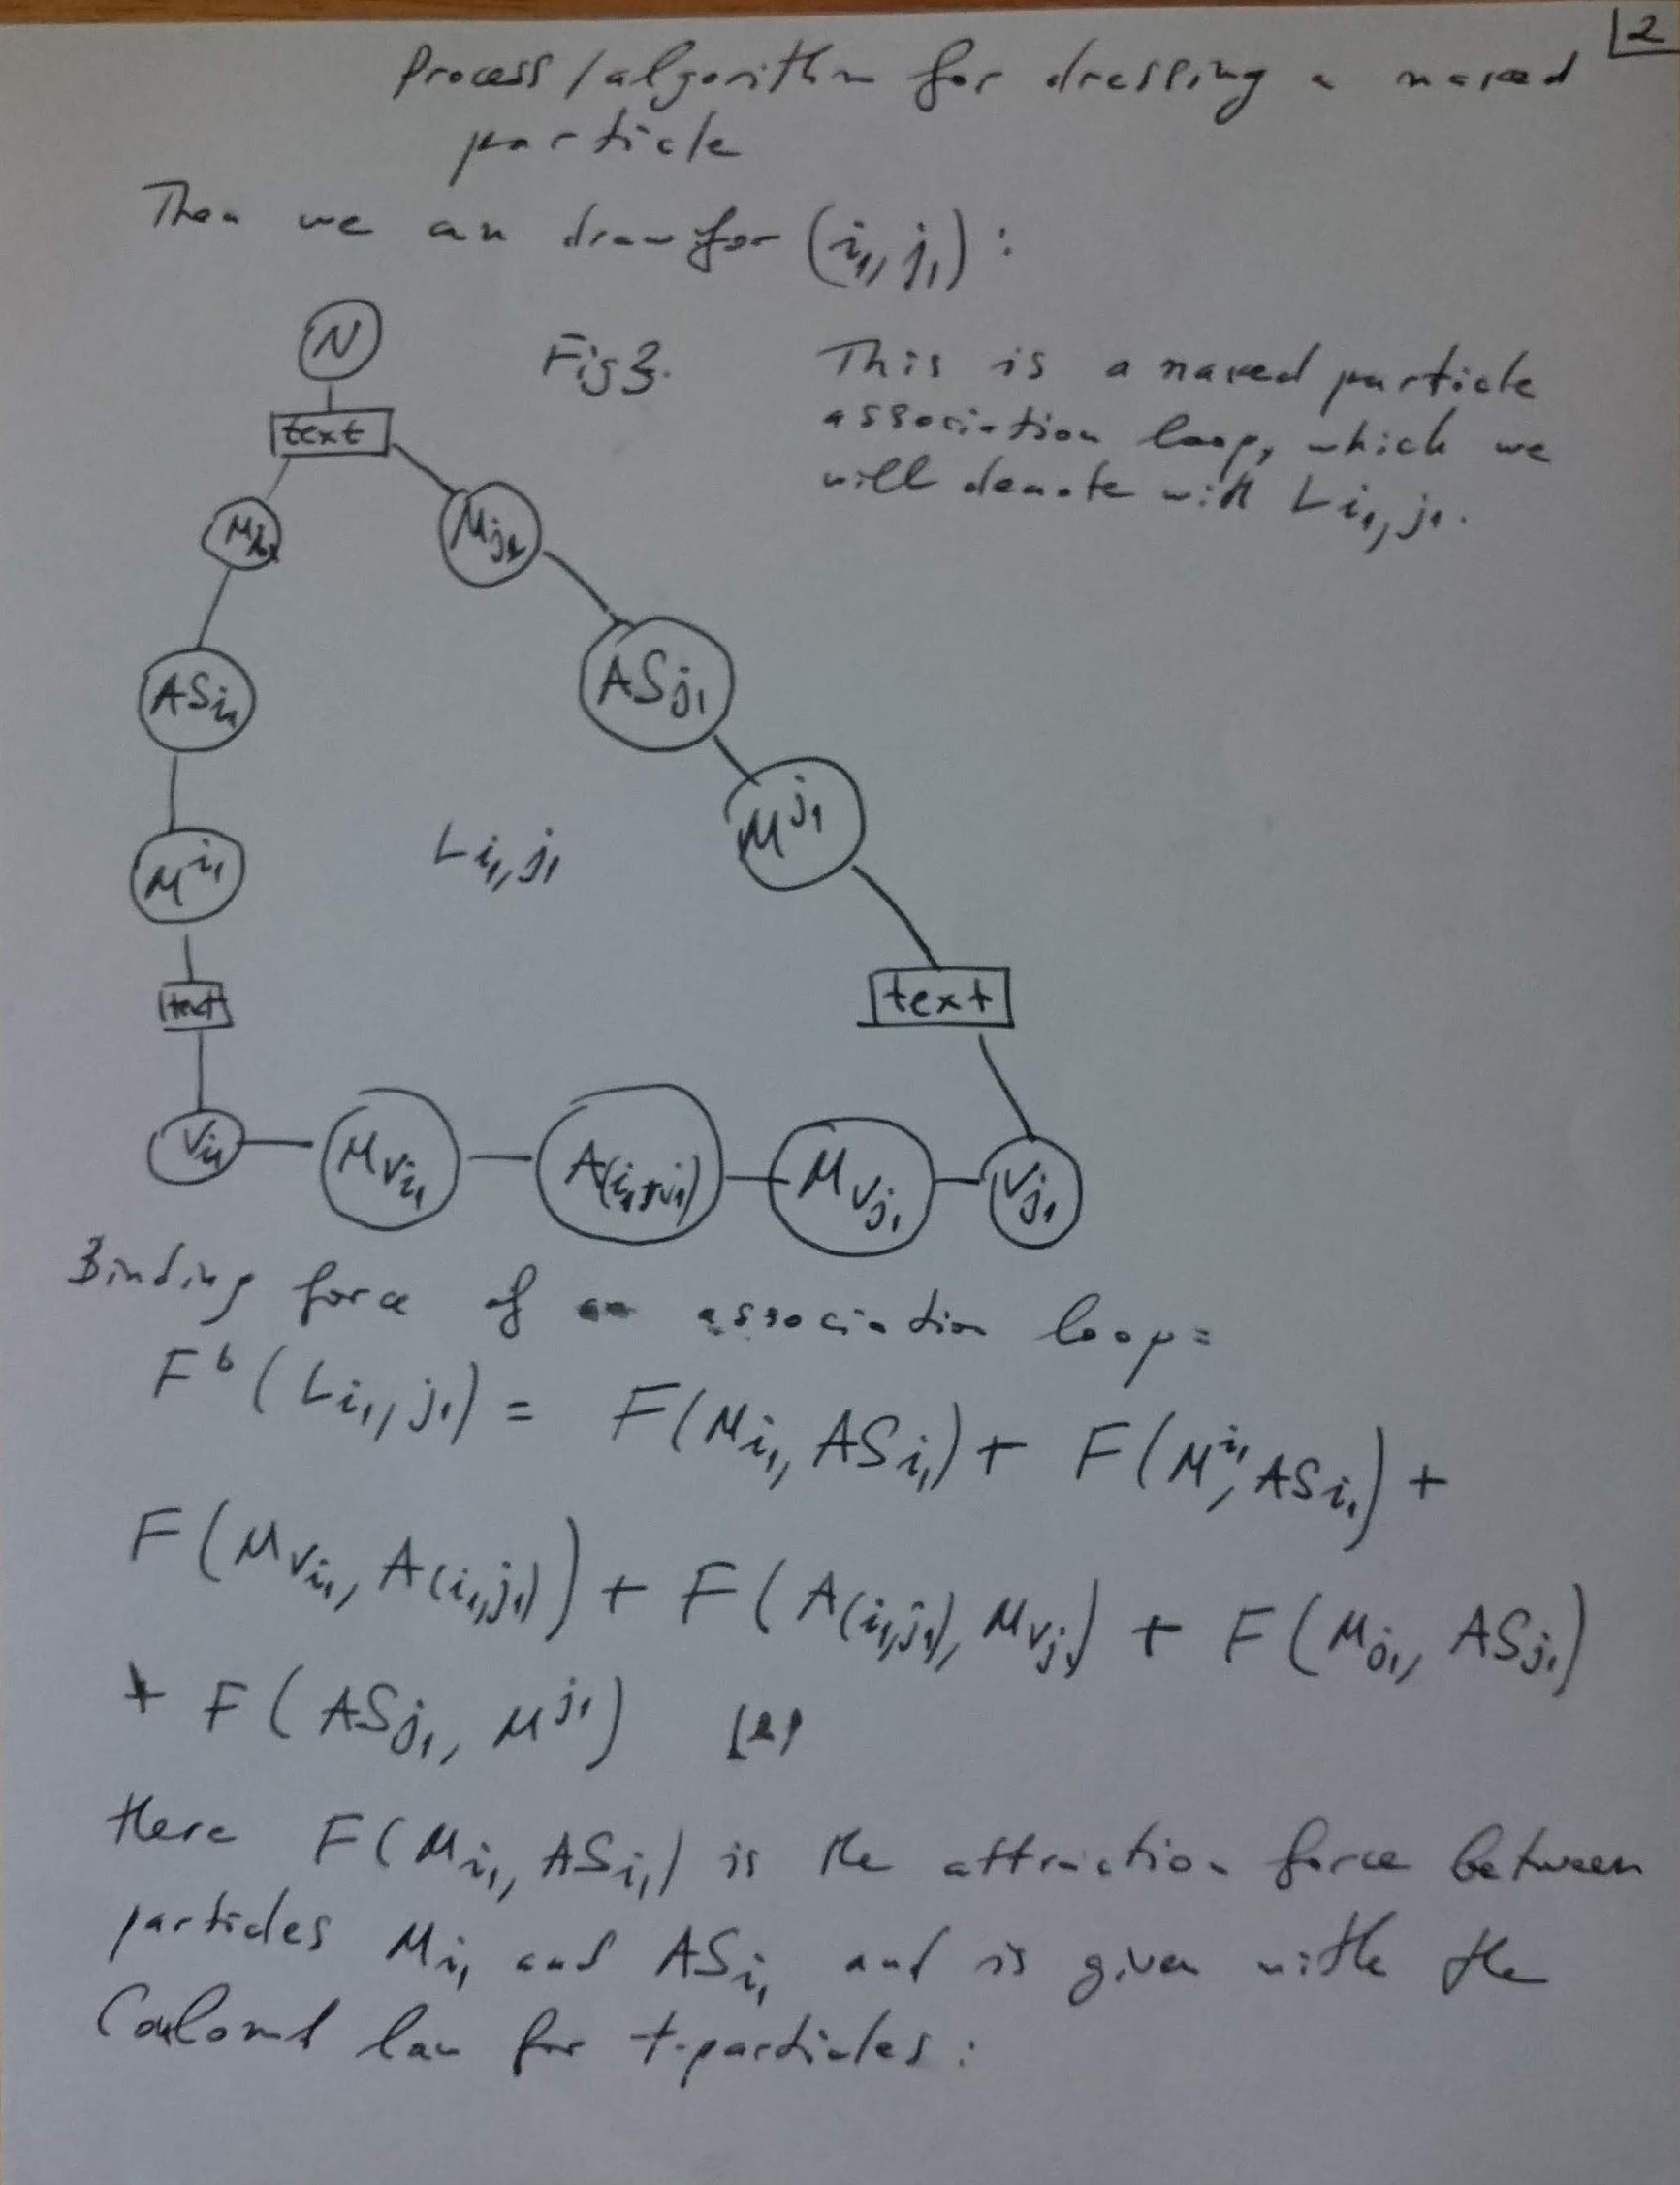 2
Process/algorithm for dressing a naked
particle
Then we can draw for (i₁, j₁):
N
Fig 3.
This is a naked particle
association loop, which we
will denote with L i₁, j₁.
text
M j₁
AS i₁
AS j₁
M^i₁
L i₁, j₁
M^j₁
text
text
V i₁
M V i₁
A(i₁, j₁)
M V j₁
V j₁
Binding force of an association loop:
F^b(L i₁, j₁) = F(M i₁, AS i₁) + F(M^i₁, AS i₁) +
F(M V i₁, A(i₁, j₁)) + F(A(i₁, j₁), M V j₁) + F(M j₁, AS j₁)
+ F(AS j₁, M^j₁) (2)
Here F(M i₁, AS i₁) is the attraction force between
particles M i₁ and AS i₁ and is given with the
Coulomb law for t-particles: